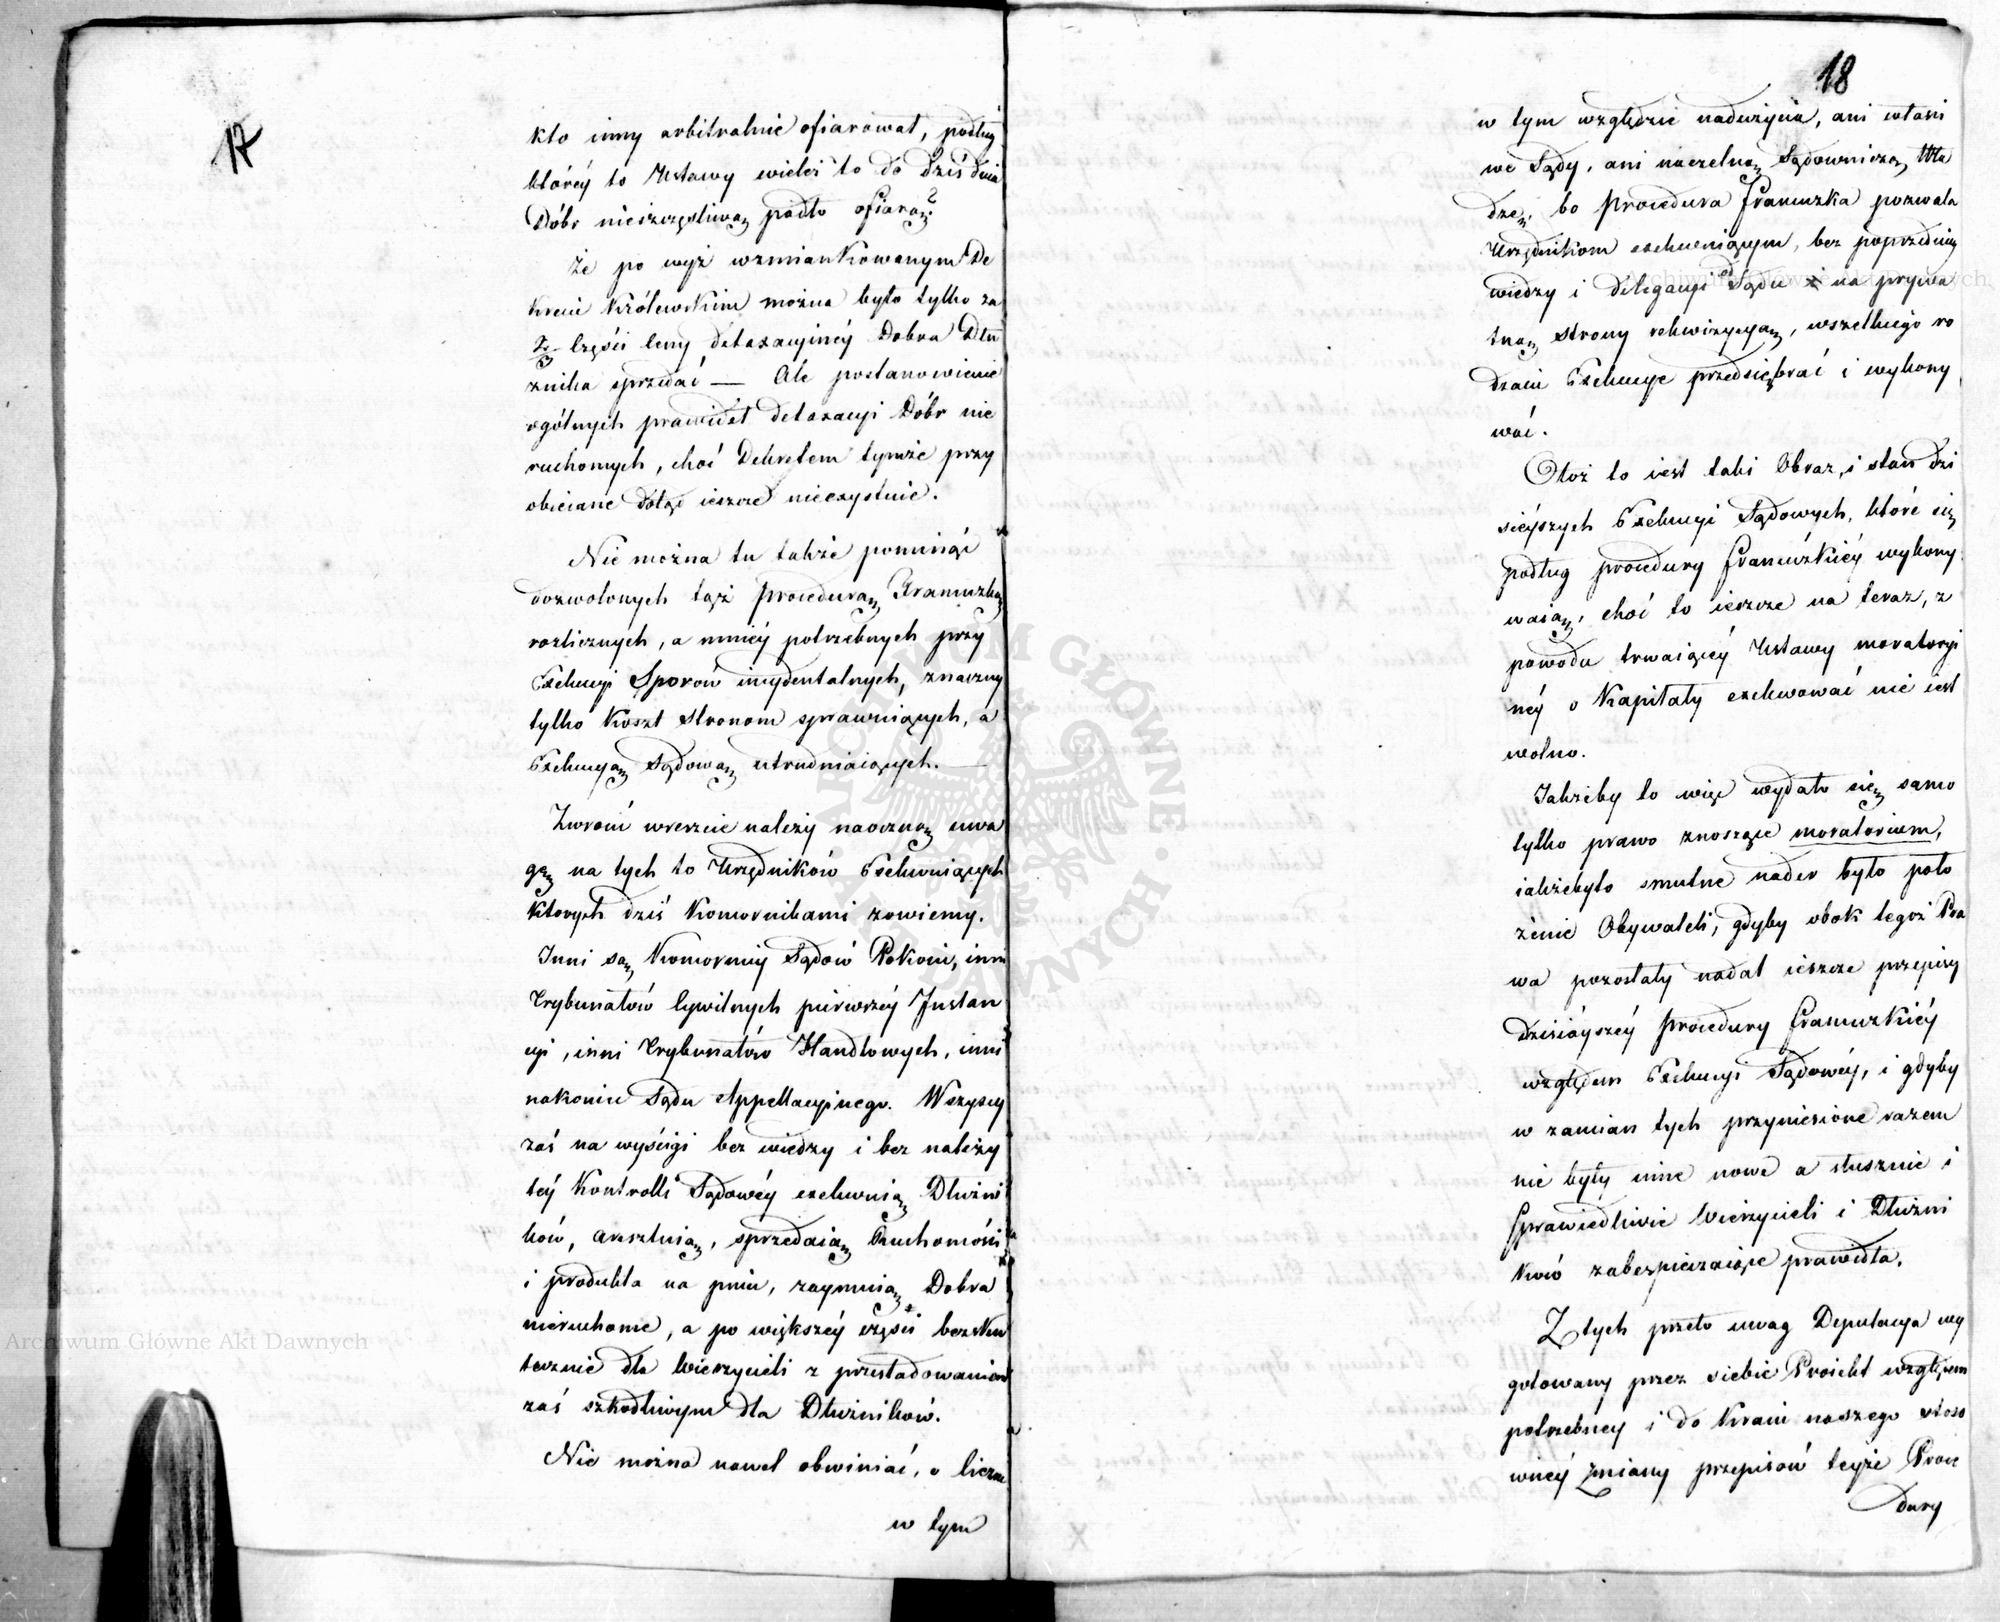 17
kto inny arbitralnie ofiarował, podług
któréy to Ustawy wieleż to do dziś dnia
Dóbr nieszczęśliwą padło ofiarą?
Że po wyż wzmiankowanym De
krecie Królewskim można było tylko za
2/3 Części Ceny detaxacyinéy Dobra Dłu
żnika sprzedać — Ale postanowienie
ogólnych prawideł detaxacyi Dóbr nie
ruchomych, choć Dekretem tymże przy
obiecane dotąd ieszcze nieexystuie.
Nie można tu także pominąć
dozwolonych tąż Procedurą Francuzką
rozlicznych, a mniéy potrzebnych przy
Exekucyi Sporów incydentalnych, znaczny
tylko Koszt Stronom sprawuiących, a
Exekucyą Sądową utrudniaiących. —
Zwrócić wreszcie należy naoczną uwa
gę na tych to Urzędników Exekwuiących
których dziś Komornikami zowiemy.
Inni są Komornicy Sądów Pokoiu, inni
Trybunałów Cywilnych pierwszéy Instan
cyi, inni Trybunałów Handlowych, inni
nakoniec Sądu Appellacyinego. Wszyscy
zaś na wyścigi bez wiedzy i bez należy
téy Kontrolli Sądowéy exekwuią Dłużni
ków, aresztuią, sprzedaią Ruchomości
i produkta na pniu, zaymuią Dobra
nieruchome, a po większéy części bezsku
tecznie dla Wierzycieli z prześladowaniem
zaś szkodliwym dla Dłużników.
Nie można nawet obwiniać, o liczne
w tym
18
w tym względzie nadużycia, ani właści
we Sądy, ani naczelną Sądowniczą Wła
dzę, bo Procedura Francuzka pozwala
Urzędnikom exekwuiącym, bez poprzedniéy
wiedzy i delegacyi od Sądu i na prywa
tną strony rekwizycyą, wszelkiego ro
dzaiu Exekucye przedsiębrać i wykony
wać.
Otoż to iest taki Obraz, i stan dzi
sieyszych Exekucyi Sądowych, które się
podług procedury Francuzkiéy wykony
waią, choć to ieszcze na teraz, z
powodu trwaiącéy Ustawy moratoryi
néy o Kapitały exekwować nie iest
wolno.
Jakżeby to więc wydało się samo
tylko prawo znoszące moratorium,
iakżebyto smutne nader było poło
żenie Obywateli, gdyby obok tegoż Pra
wa pozostały nadal ieszcze przepisy
dzisiéyszéy Procedury Francuzkiéy
względem Exekucyi Sądowéy, i gdyby
w zamian tych przyniesione razem
nie były inne nowe a słusznie i
Sprawiedliwie Wierzycieli i Dłużni
ków zabezpieczaiące prawidła.
Z tych przeto uwag Deputacya wy
gotowany przez siebie Proiekt względem
potrzebnéy i do Kraiu naszego stoso
wnéy zmiany przepisów teyże Proce
dury
Archiwum Główne Akt Dawnych
Archiwum Główne Akt Dawnych
ARCHIWUM GŁÓWNE AKT DAWNYCH